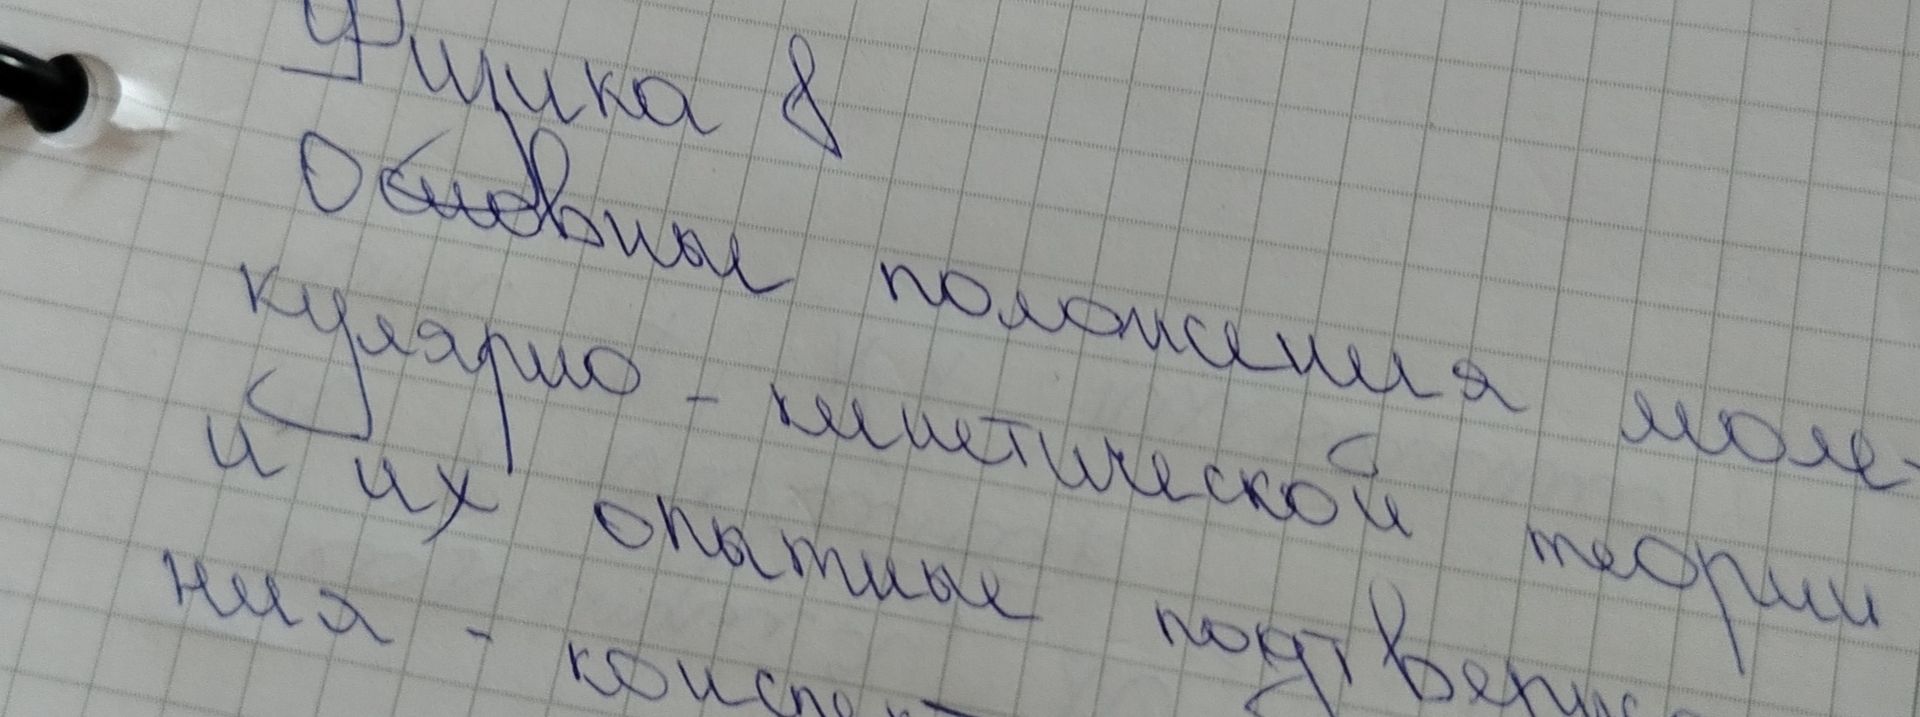 Физика 8
Основные положения моле-
кулярно - кинетической теории
и их опытные подтвержде-
ния - конспект